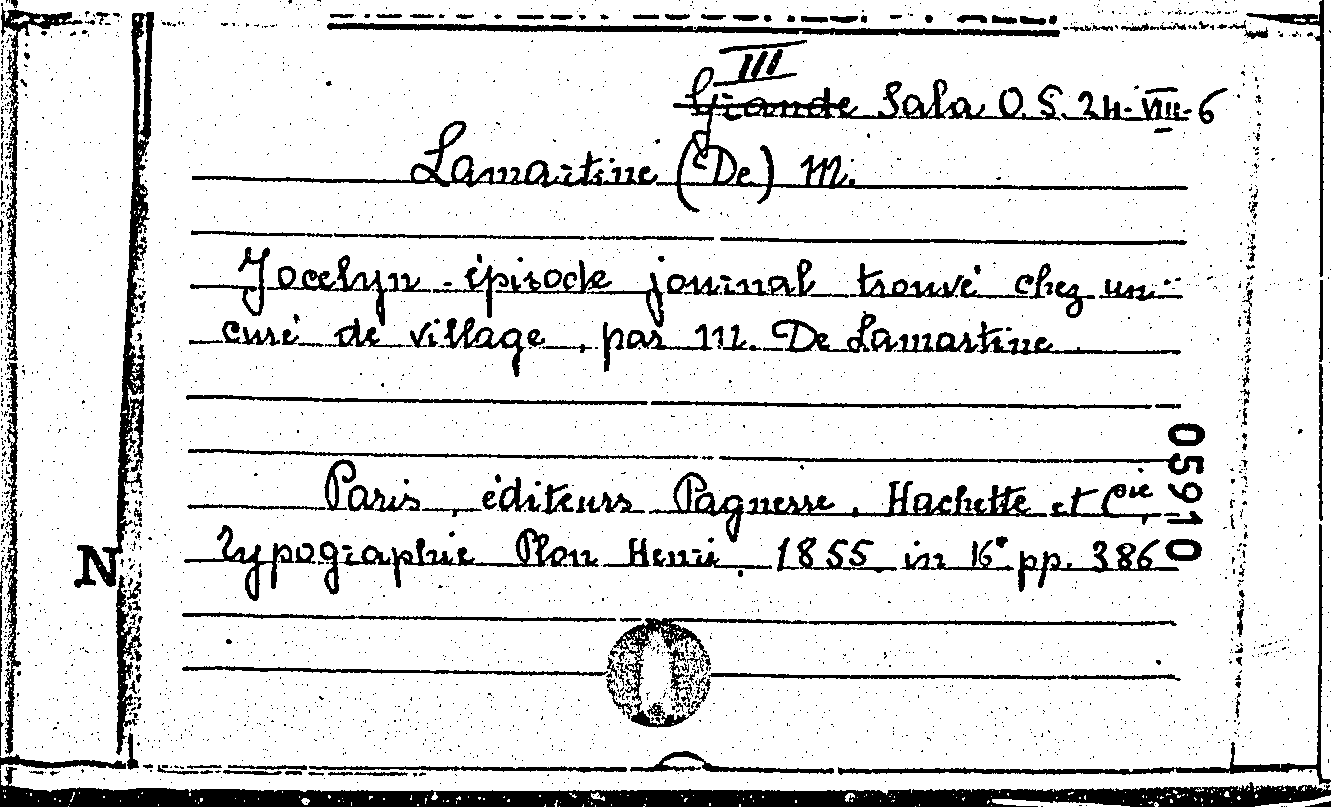 III
Grande Sala O. S. 24-VIII-6
Lamartine (De) M.
Jocelyn - épisode journal trouvé chez un
curé de village, par M. De Lamartine
Paris, éditeurs Pagnerre, Hachette et Cie,
Typographie Plon Henri, 1855 in 16° pp. 386
05910
N